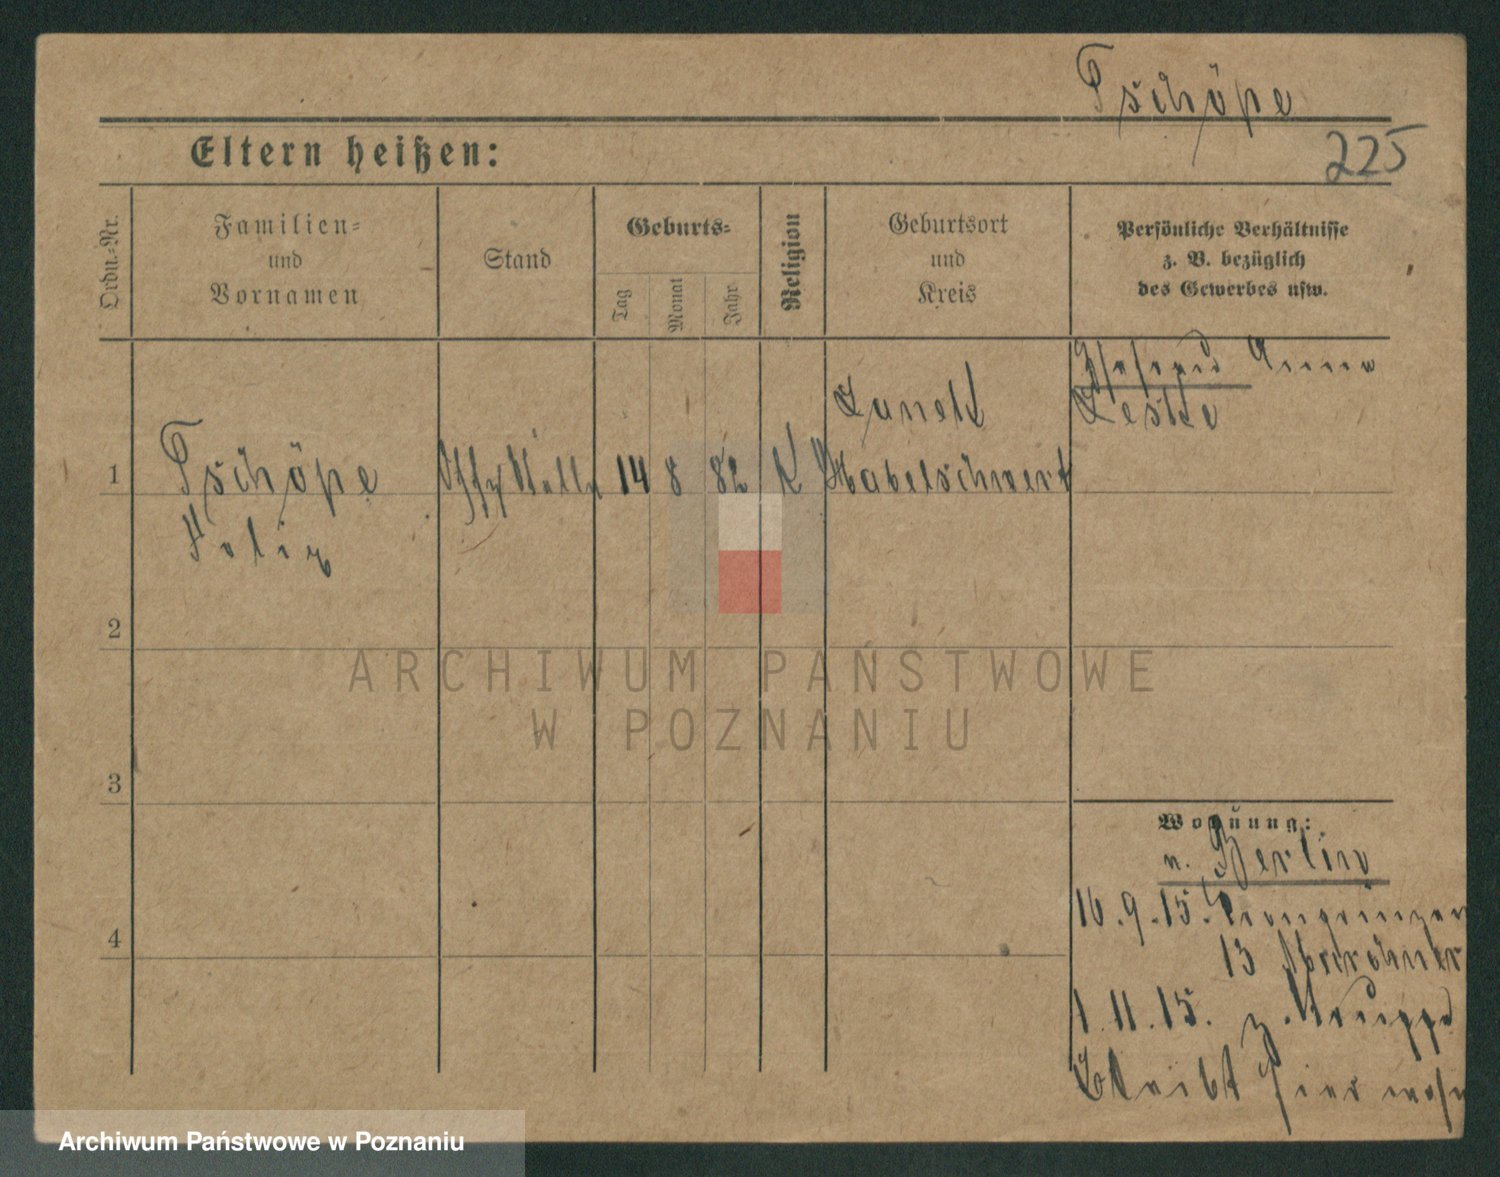 Tschöpe
225
Eltern heißen:
Ordn.=Nr.
Familien=
und
Vornamen
Stand
Geburts=
Tag
Monat
Jahr
Religion
Geburtsort
und
Kreis
Persönliche Verhältnisse
z. B. bezüglich
des Gewerbes usw.
Anna
Leske
1
Tschöpe
14 8 82 K
Habelschwert
Felix
2
3
4
Wohnung:
n. Berlin
16.9.15. Kronprinzen
13
1.11.15. z. Truppe
Bleibt hier
ARCHIWUM PAŃSTWOWE
W POZNANIU
Archiwum Państwowe w Poznaniu